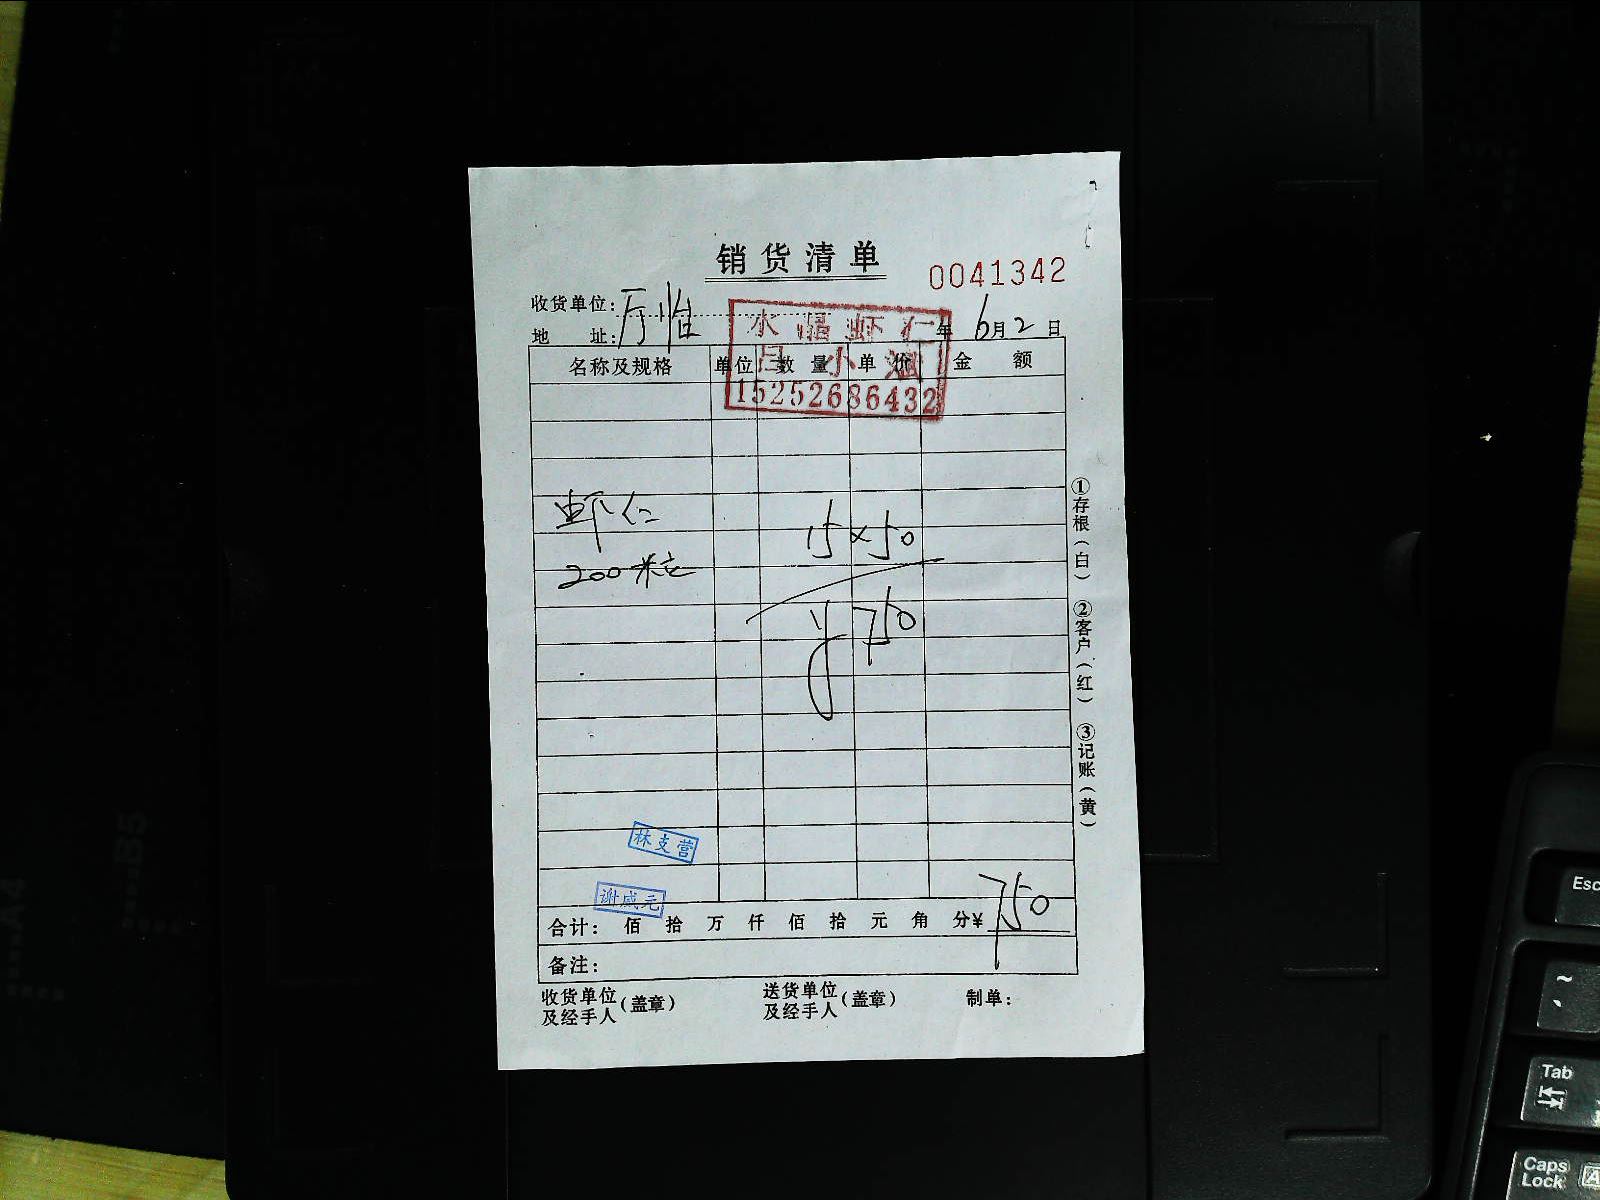 销货清单
0041342
收货单位:
水晶虾仁
年 6月2日
地 址:
名称及规格 单位 数量 单价 金额
吕小
15252686432
虾仁 15×50
200粒
¥750
①存根(白) ②客户(红) ③记账(黄)
林支营
谢咸元
合计: 佰 拾 万 仟 佰 拾 元 角 分¥750
备注:
收货单位及经手人(盖章) 送货单位及经手人(盖章) 制单:
A4
B5
Esc
~
Tab
Caps Lock
A